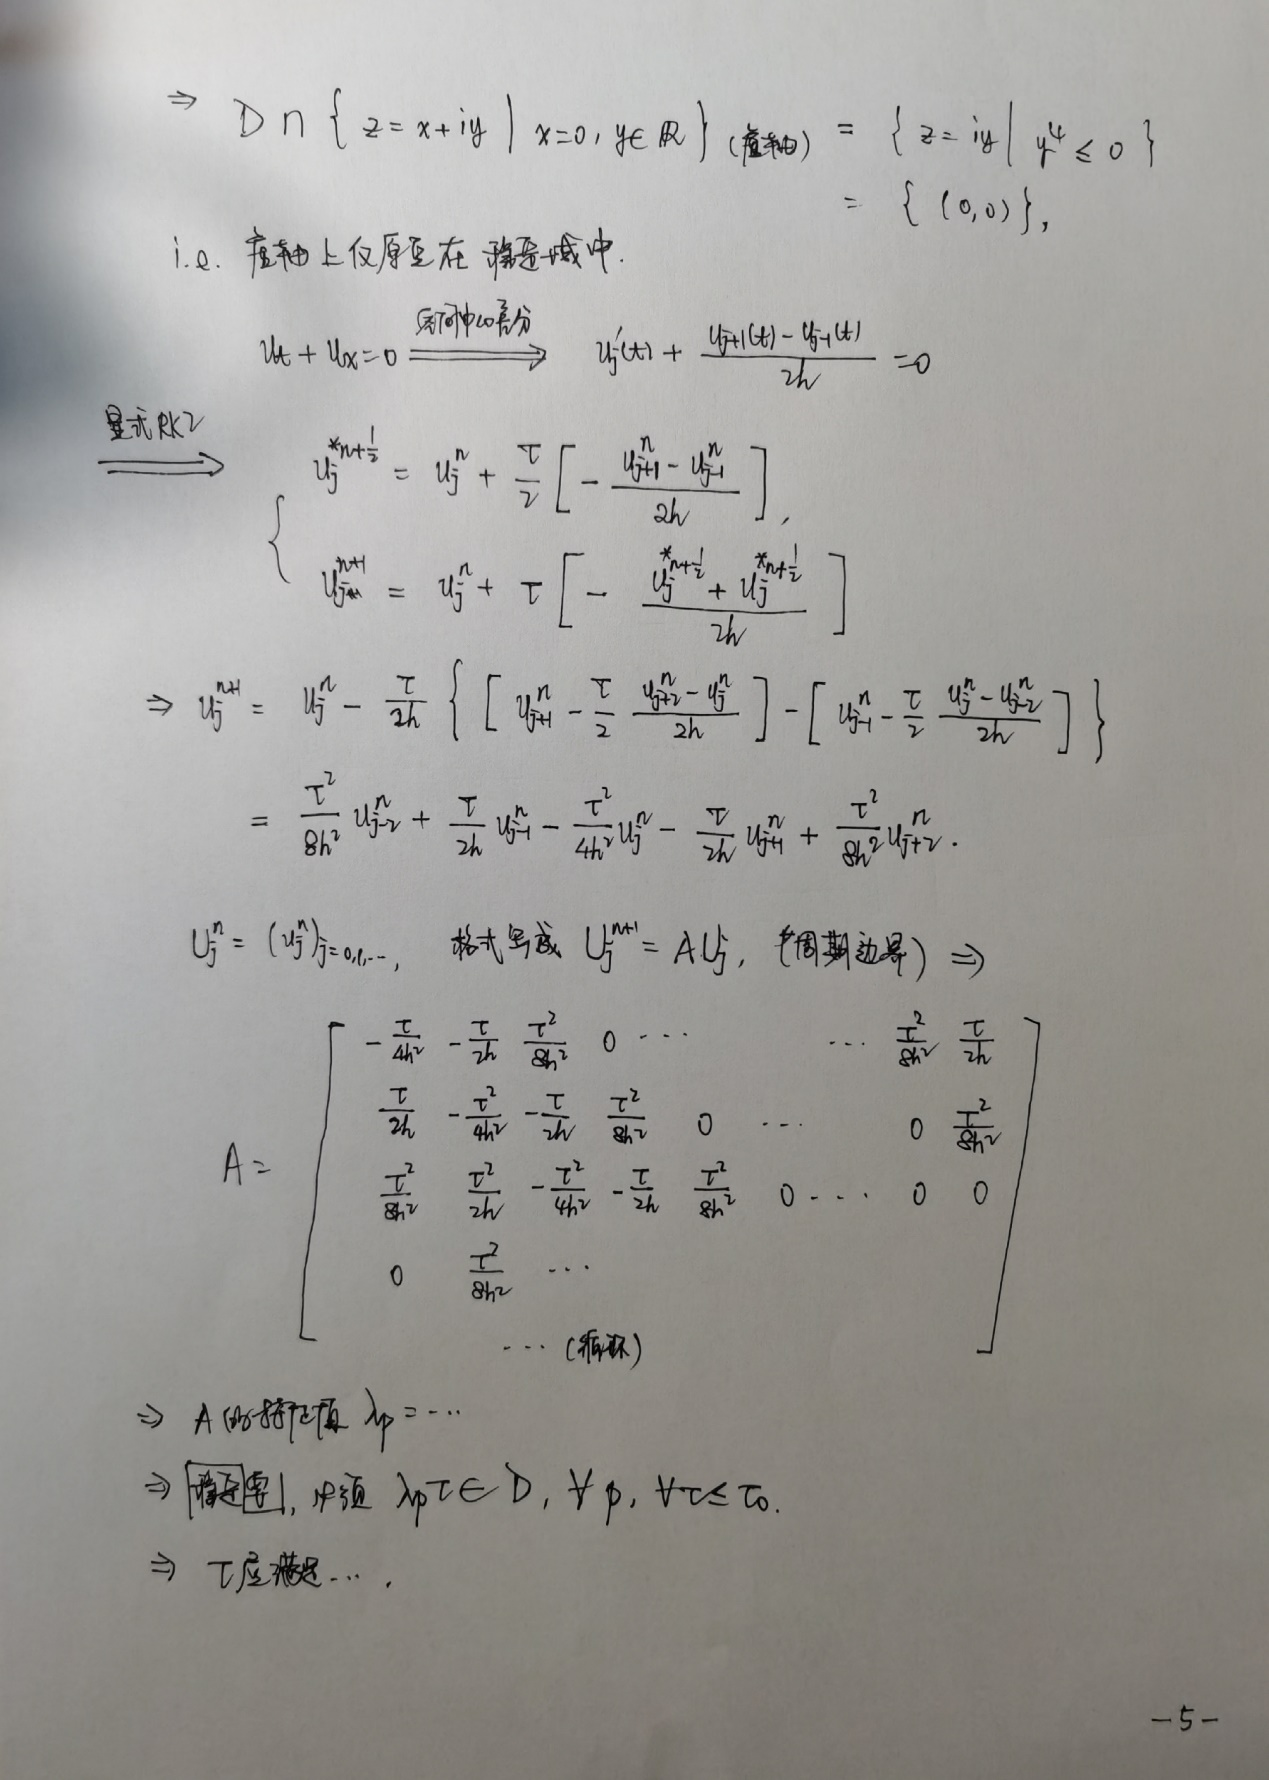 ⇒ D ∩ { z = x + iy | x=0, y∈ℝ } (虚轴) = { z = iy | y⁴ ≤ 0 }
= { (0,0) },
i.e. 虚轴上仅原点在稳定域中.
u_t + u_x = 0 ⟹(空间中心差分) u_j'(t) + (u_{j+1}(t) - u_{j-1}(t))/2h = 0
显式RK2
⟹ { u_j^{*n+1/2} = u_j^n + τ/2 [ - (u_{j+1}^n - u_{j-1}^n)/2h ],
u_j^{n+1} = u_j^n + τ [ - (u_j^{*n+1/2} + u_j^{*n+1/2})/2h ]
⇒ u_j^{n+1} = u_j^n - τ/2h { [ u_{j+1}^n - τ/2 (u_{j+2}^n - u_j^n)/2h ] - [ u_{j-1}^n - τ/2 (u_j^n - u_{j-2}^n)/2h ] }
= τ²/8h² u_{j-2}^n + τ/2h u_{j-1}^n - τ²/4h² u_j^n - τ/2h u_{j+1}^n + τ²/8h² u_{j+2}^n .
U_j^n = (u_j^n)_{j=0,1,...}, 格式写成 U_j^{n+1} = A U_j, (周期边界) ⇒
A = [ -τ/4h² -τ/2h τ²/8h² 0 ... ... τ²/8h² τ/2h
τ/2h -τ²/4h² -τ/2h τ²/8h² 0 ... 0 τ²/8h²
τ²/8h² τ²/2h -τ²/4h² -τ/2h τ²/8h² 0 ... 0 0
0 τ²/8h² ...
... (循环) ]
⇒ A的特征值 λ_p = ...
⇒ 稳定零, 必须 λ_p τ ∈ D, ∀ p, ∀ τ ≤ τ₀.
⇒ τ应满足 ... .
-5-